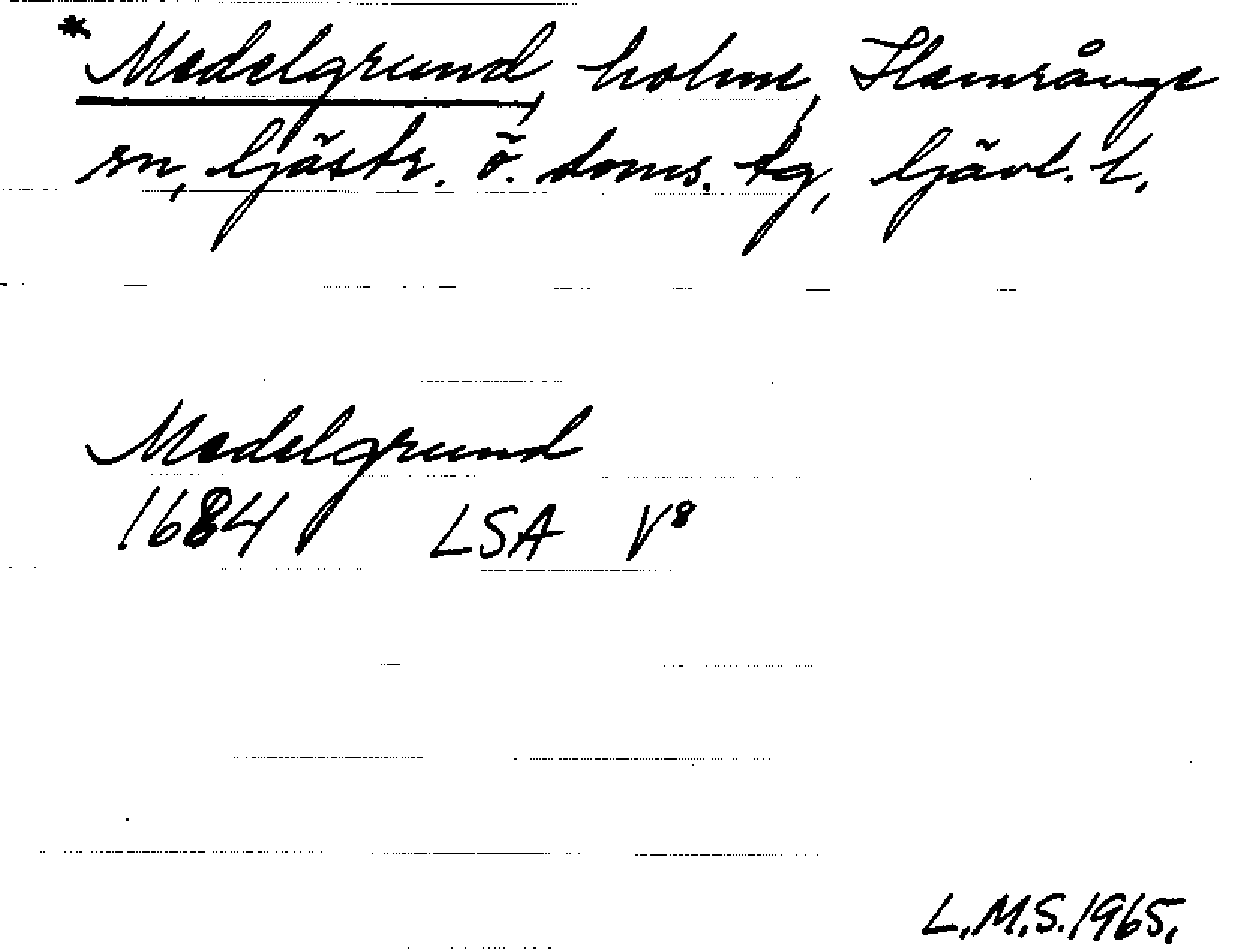 * Medelgrund, holme, Hamrånge
sn, Gästr. ö. doms. tg, Gävl. l.
Medelgrund
1684 LSA V8
L.M.S. 1965.